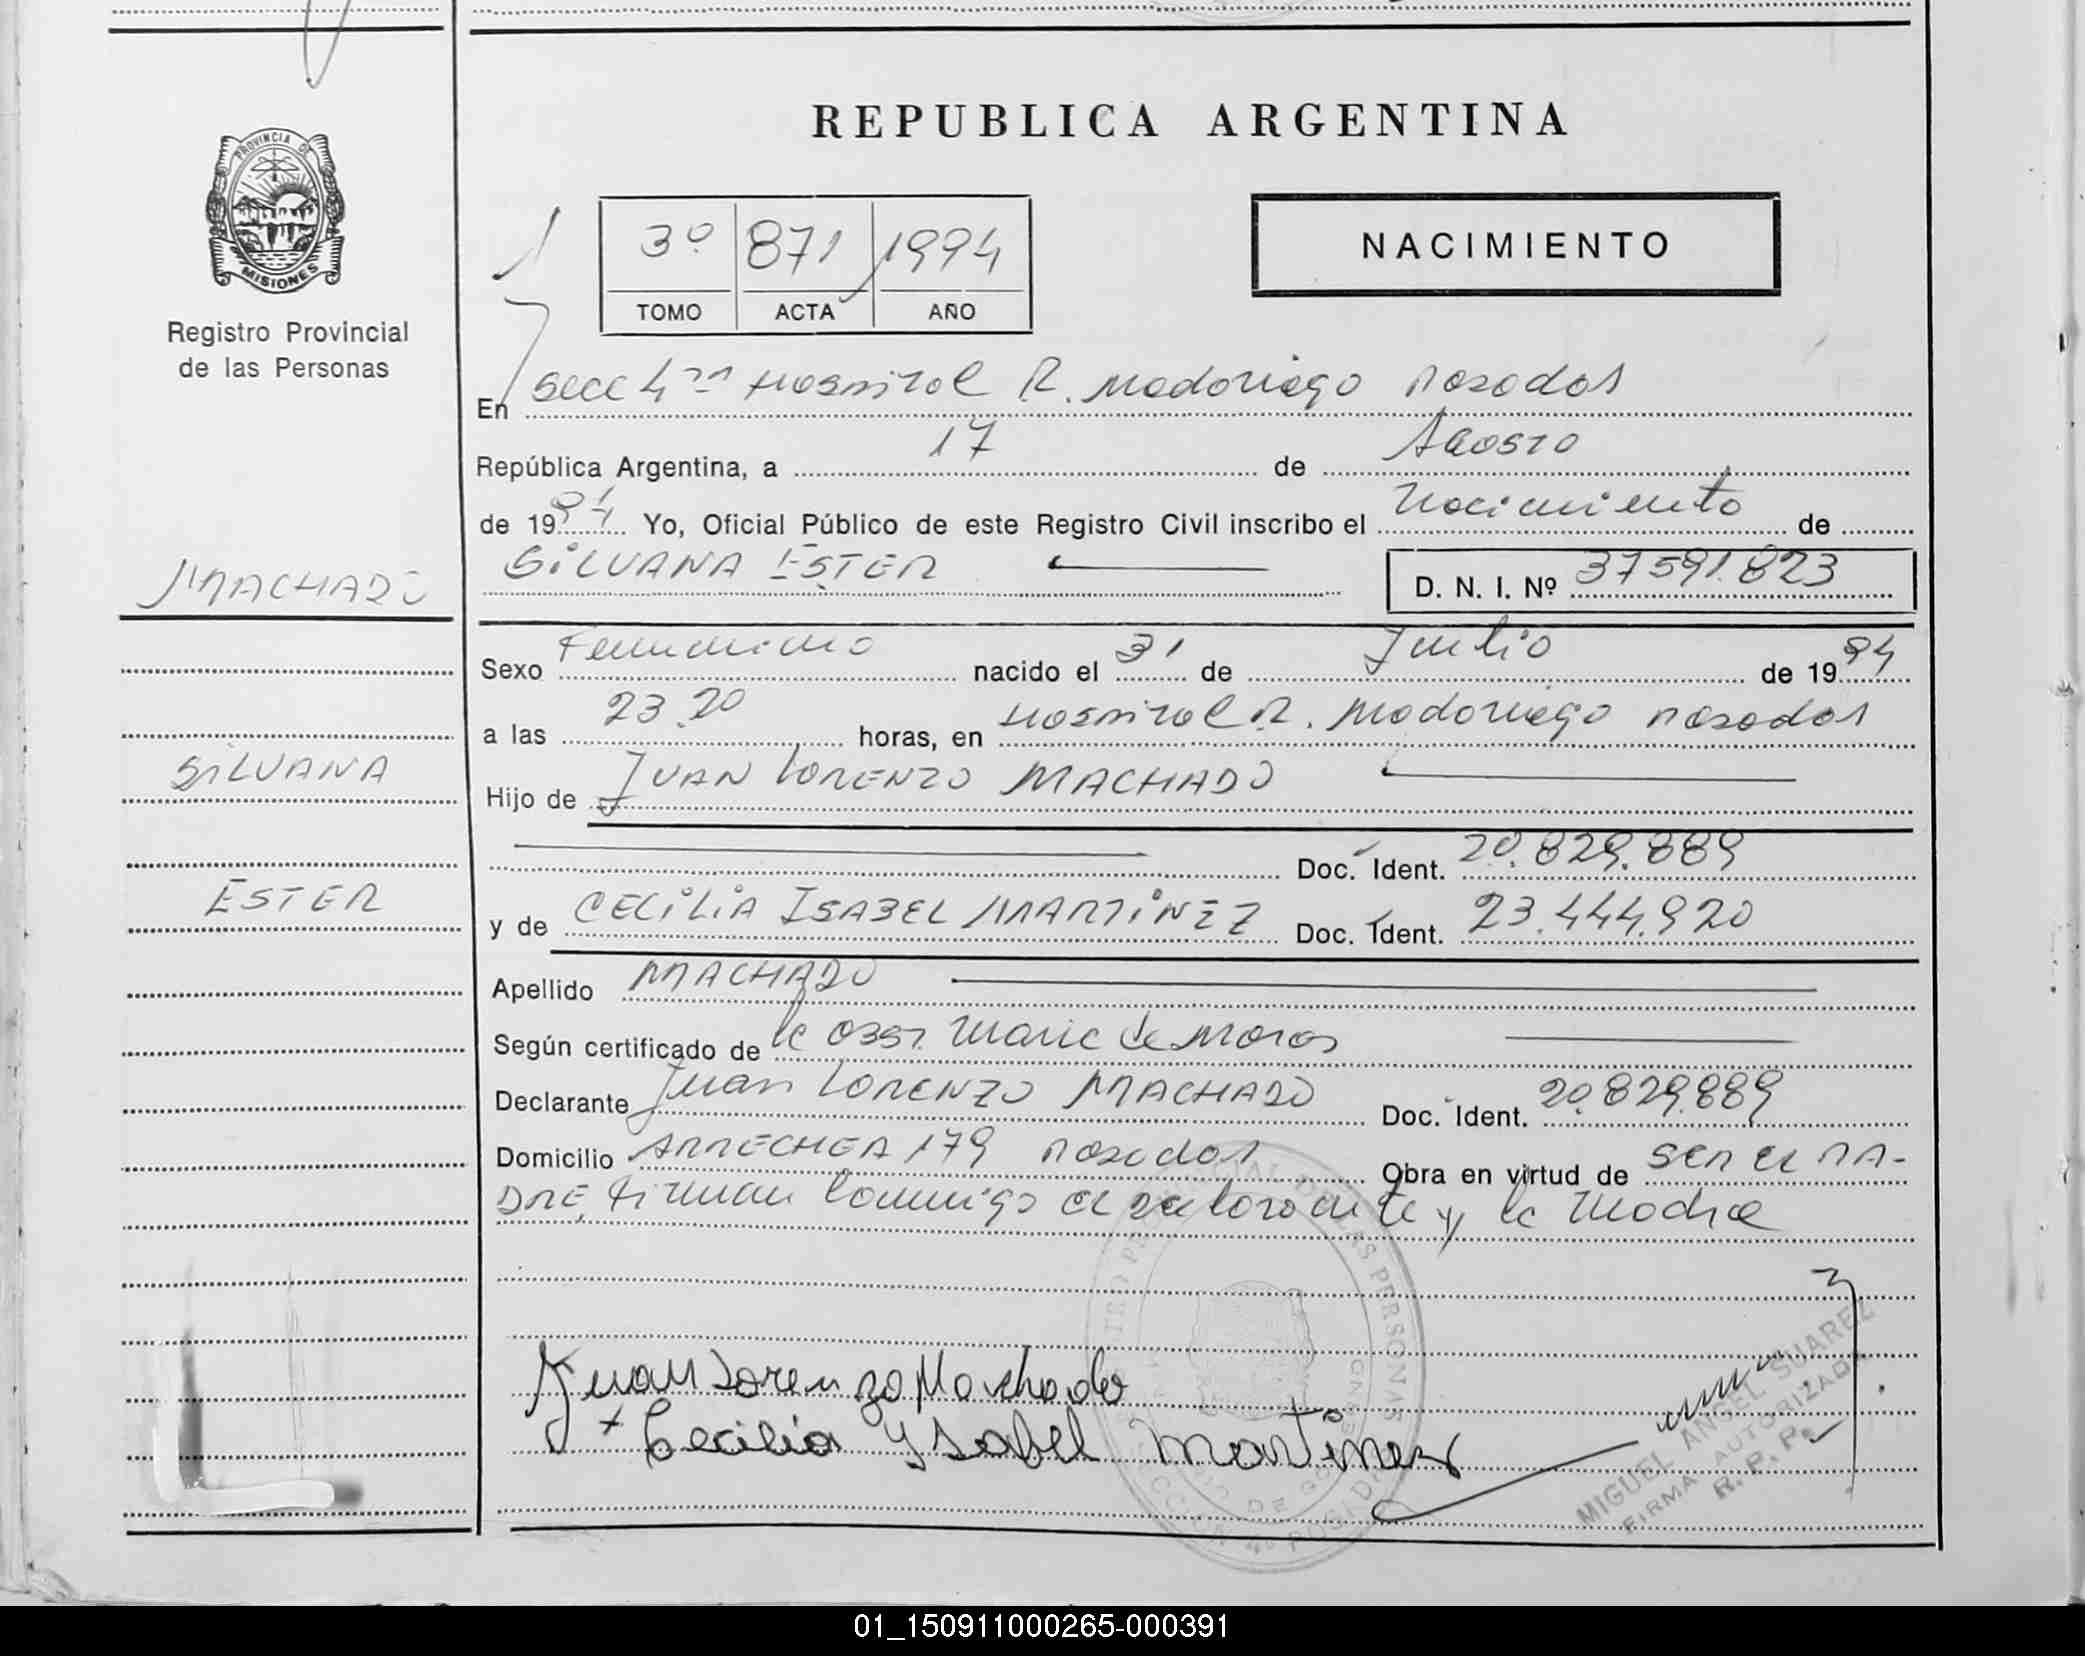 REPUBLICA ARGENTINA
PROVINCIA DE
MISIONES
Registro Provincial
de las Personas
3º 871 1994
TOMO ACTA AÑO
NACIMIENTO
En Secc 4ta Hospital R. Madariaga Posadas
República Argentina, a 17 de Agosto
de 1994 Yo, Oficial Público de este Registro Civil inscribo el Nacimiento de
MACHADO
SILVANA ESTER D. N. I. Nº 37591.823
Sexo Femenino nacido el 31 de Julio de 1994
a las 23.20 horas, en Hospital R. Madariaga Posadas
SILVANA
Hijo de JUAN LORENZO MACHADO
Doc. Ident. 20.829.889
ESTER
y de CECILIA ISABEL MARTINEZ Doc. Ident. 23.444.920
Apellido MACHADO
Según certificado de la Obst. Maria de Moras
Declarante Juan LORENZO MACHADO Doc. Ident. 20.829.889
Domicilio ARRECHEA 179 Posadas Obra en virtud de SER EL PA-
DRE, Firman Conmigo el declarante y la Madre
Juan Lorenzo Machado
+ Cecilia Ysabel Martinez
MIGUEL ANGEL SUAREZ
FIRMA AUTORIZADA
R. P. P.
01_150911000265-000391